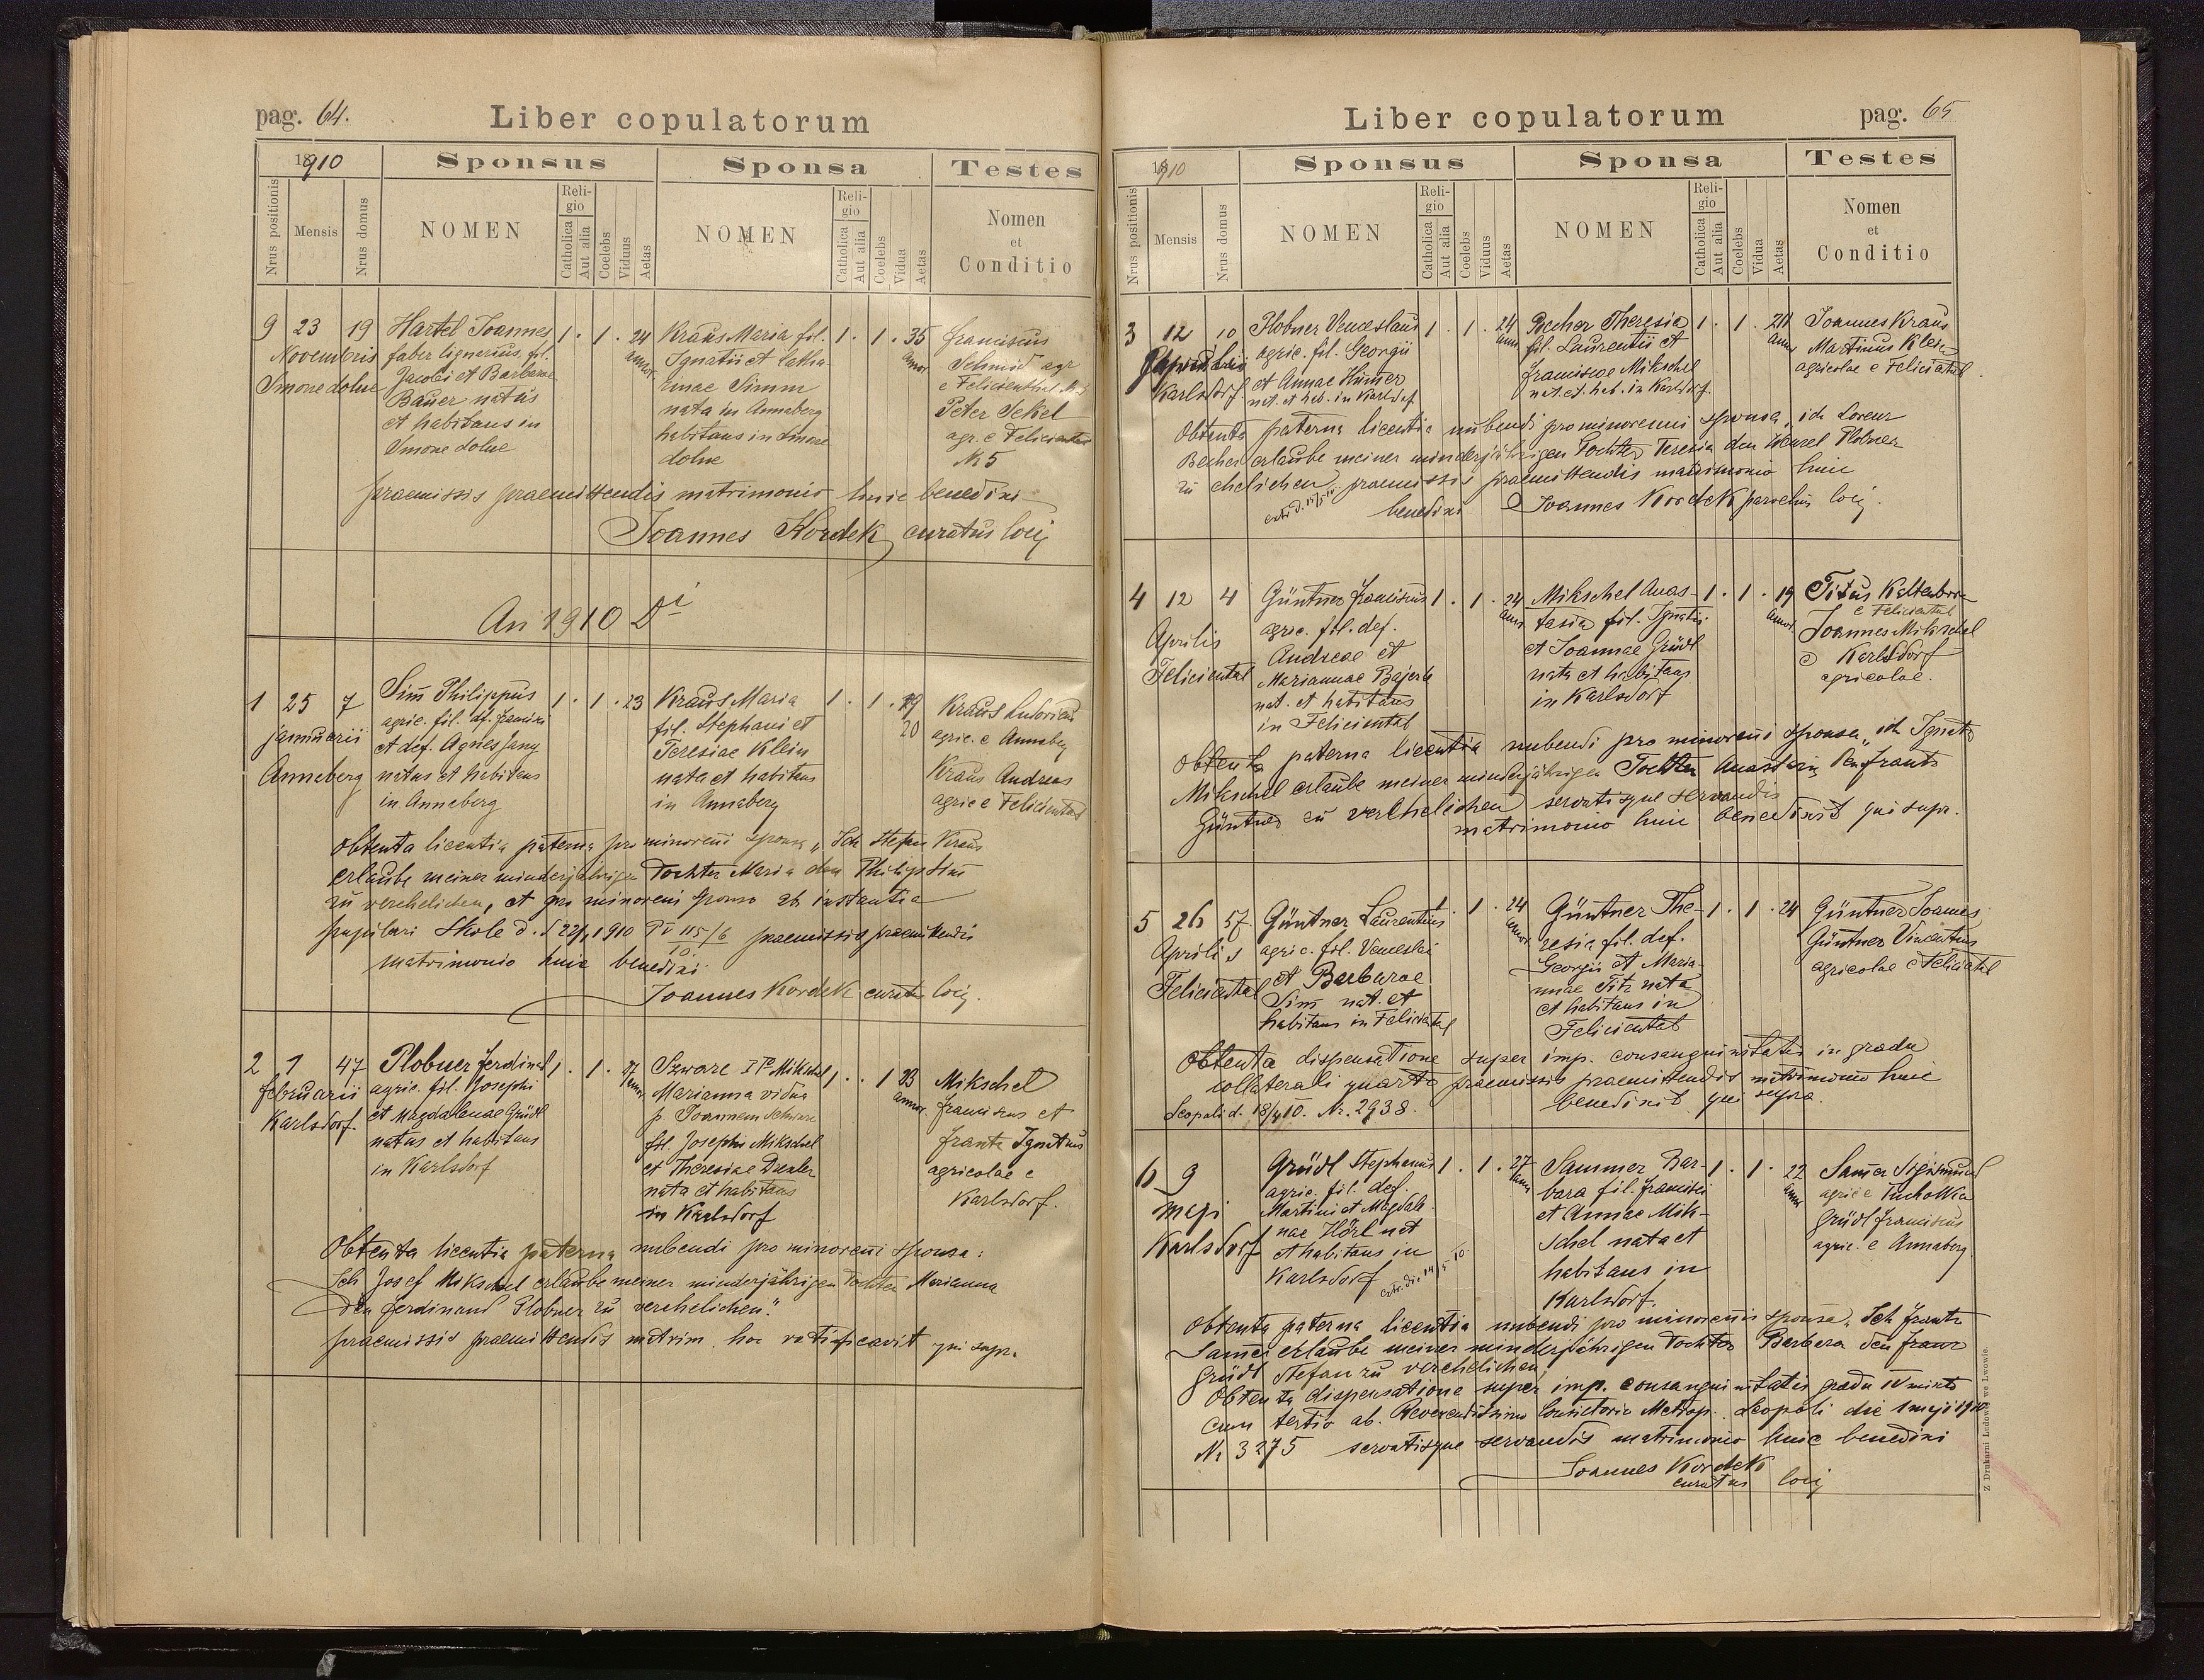 pag. 64.
Liber copulatorum
1910
Sponsus
Sponsa
Testes
Nrus positionis
Mensis
Nrus domus
NOMEN
Religio
Catholica
Aut alia
Coelebs
Viduus
Aetas
NOMEN
Religio
Catholica
Aut alia
Coelebs
Vidua
Aetas
Nomen
et
Conditio
9 23 19 Hartel Joannes 1 . 1 . 24 Kraus Maria fil. 1 . 1 . 35 franciscus
Novembris faber lignarius, fil. annor. Ignatii et Catha- annor. Schmid agr
Smorze dolne Jacobi et Barbarae rinae Simm e Felicienthal
Bauer natus nata in Anneberg Peter Sekel
et habitans in habitans in Smorze agr. e Felicienthal
Smorze dolne dolne Nr 5
praemissis praemittendis matrimonio huic benedixi
Joannes Kordek, curatus loci
An 1910 Di
1 25 7 Sim Philippus 1 . 1 . 23 Kraus Maria 1 . 1 . 19 Kraus Ludovicus
januarii agric. fil. df. fil. Stephani et 20 agric. e Anneberg
et def. Agnes Jany Teresiae Klein Kraus Andreas
Anneberg natus et habitans nata et habitans agric e Felicienthal
in Anneberg in Annaberg
Obtenta licentia paterna pro minoreni sponsa „Ich Stefan Kraus
erlaube meiner minderjährigen Tochter Maria den Philipp Sim
zu verehelichen, et pro minoreni sponso ab instantia
pupilari Skole d. 1910 P V 115/6 10 praemissis praemittendis
matrimonio huic benedixi
Joannes Kordek curatus loci.
2 1 47 Plobner ferdinand 1 . 1 . 27 Szwarc Mikschel 1 . . 1 23 Mikschel
februarii agric. fil. Josephi annor. Marianna vidua annor. franciscus et
Karlsdorf. et Magdalenae Grüdl p. Joannem Schwarc frantz Ignatius
natus et habitans fil. Josephi Mikschel agricolae e
in Karlsdorf et Theresiae Drexler Karlsdorf.
nata et habitans
in Karlsdorf
Obtenta licentia paterna nubendi pro minoreni sponsa:
Ich Josef Mikschel erlaube meiner minderjährigen Tochter Marianna
den ferdinand Plobner zu verehelichen."
praemissis praemittendis matrim. hoc ratificavit qui supr.
Liber copulatorum
pag. 65
1910
Sponsus
Sponsa
Testes
Nrus positionis
Mensis
Nrus domus
NOMEN
Religio
Catholica
Aut alia
Coelebs
Viduus
Aetas
NOMEN
Religio
Catholica
Aut alia
Coelebs
Vidua
Aetas
Nomen
et
Conditio
3 12 10 Plobner Venceslaus 1 . 1 . 24 Becher Theresia 1 . 1 . 20 Joannes Kraus
agric. fil. Georgii annor. fil. Laurentii et annor. Martinus Klein
Karlsdorf. et Annae Hümer franciscae Mikschel agricolae e Felicienthal
nat. et hab. in Karlsdorf nat. et. hab. in Karlsdorf.
Obtenta paterna licentia nubendi pro minoreni sponsa „ich Lorenz
Becher erlaube meiner minderjährigen Tochter Teresia den Wenzel Plobner
zu ehelichen, praemissis praemittendis matrimonio huic
benedixi Joannes Kordek parochus loci.
4 12 4 Güntner franciscus 1 . 1 . 24 Mikschel Anas- 1 . 1 . 19 Titus Kaltenborn
Aprilis agric. fil. def. annor. tasia fil. Ignatii annor. e Felicienthal
Felicienthal Andreae et et Joannae Grüdl Joannes Mikschel
Mariannae Bajerle nata et habitans e Karlsdorf
nat. et habitans in Karlsdorf agricolae.
in Felicienthal
Obtenta paterna licentia nubendi pro minoreni sponsa „ich Ignatz
Mikschel erlaube meiner minderjährigen Tochter Anastasia den frantz
Güntner zu verehelichen servatisque servandis
matrimonio huic benedixit qui supr.
5 26 57. Güntner Laurentius 1 . 1 . 24 Güntner The- 1 . 1 . 24 Güntner Joannes
Aprilis agric. fil. Venceslai annor. resia fil. def. Güntner Vincentius
Felicienthal et Barbarae Georgii et Maria- agricolae e Felicienthal
Sim nat. et nnae Titz nata
habitans in Felicienthal et habitans in
Felicienthal
Obtenta dispensatione super imp. consanguinitatis in gradu
collaterali quarto praemissis praemittendis matrimonio huic
Leopoli d. 18/4 10. Nr. 2938. benedixit qui supra.
6 9 Grüdl Stephanus 1 . 1 . 27 Sammer Bar- 1 . 1 . 22 Samer Sigismund
maji agric. fil. def. annor. bara fil. francisci annor. agric e Tucholka
Karlsdorf Martini et Magdale- et Annae Mik- Grüdl franciscus
nae Hörl nat schel nata et agric. e Annaberg.
et habitans in habitans in
Karlsdorf Karlsdorf.
Obtenta paterna licentia nubendi pro minorenis sponsa. Ich frantz
Samer erlaube meiner minderjährigen Tochter Barbara den franz
Grüdl Stefan zu verehelichen
Obtenta dispensatione super imp. consanguinitatis gradu IV mixto
cum tertio ab. Reverendissimo Consistorio Metrop. Leopoli die 1 maji 1910
Nr 3275 servatisque servandis matrimonio huic benedixi
Joannes Kordek
curatus loci
Z Drukarni Ludowej we Lwowie.